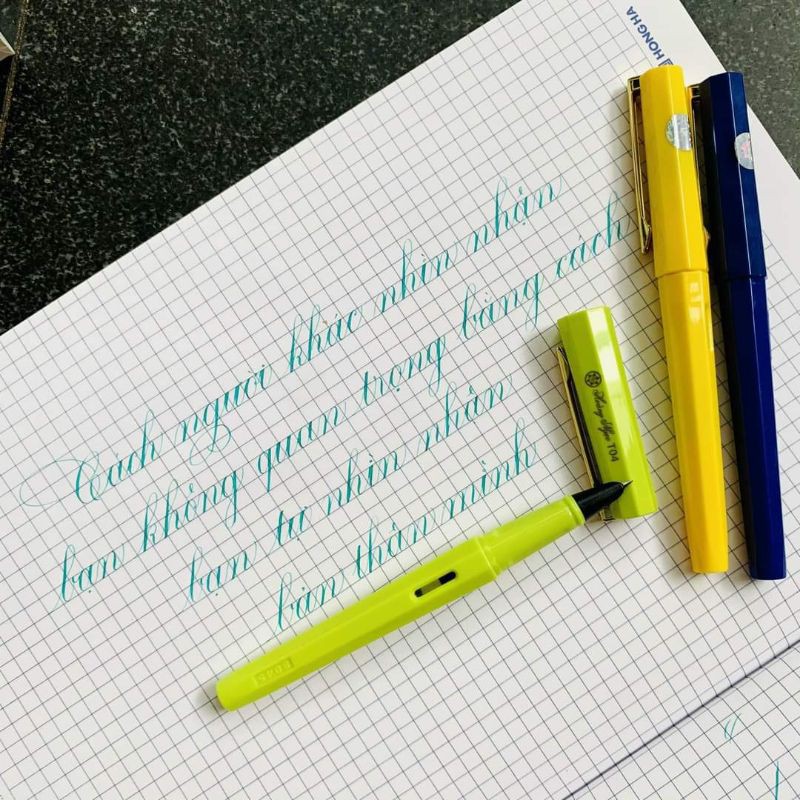 HONG HA
Cách người khác nhìn nhận
bạn không quan trọng bằng cách
bạn tự nhìn nhận
bản thân mình
T04